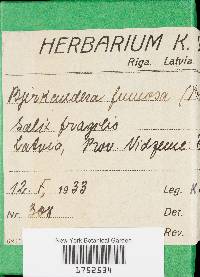 HERBARIUM K.
Riga. Latvia
Bjerkandera fumosa (P
Salix fragilis
Latvia, Prov. Vidzeme.
12. X, 1933
Leg. K
Nr. 308
Det.
Rev.
New York Botanical Garden
1752534